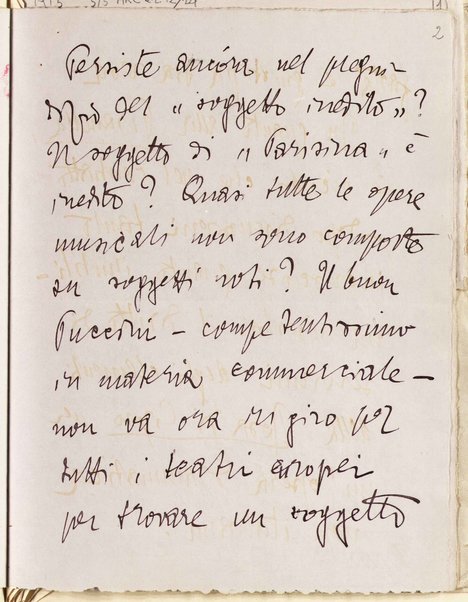 2
Persiste ancóra nel pregiu-
dizio del "soggetto inedito"?
Il soggetto di "Parisina" è
inedito? Quasi tutte le opere
musicali non sono composte
su soggetti noti? Il buon
Puccini – competentissimo
in materia commerciale –
non va ora in giro per
tutti i teatri europei
per trovare un soggetto